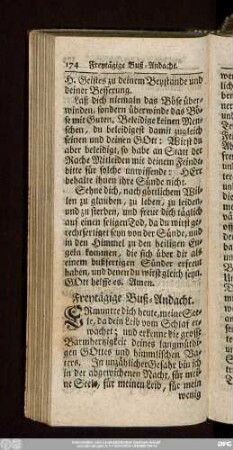 174 Freytägige Buß-Andacht.
H. Geistes zu deinem Beystande und
deiner Besserung.
Laß dich niemaln das Böse über
winden, sondern überwinde das Bö-
se mit Guten. Beleidige keinen Men-
schen, du beleidigest damit zugleich
seinen und deinen GOtt: Wirst du
aber beleidigt, so habe an Statt der
Rache Mitleiden mit deinem Feinde,
bitte für solche unwissende: HErr
behalte ihnen ihre Sünde nicht.
Sehne dich, nach göttlichem Wil-
len zu glauben, zu leben, zu leiden,
und zu sterben, und freue dich täglich
auf einen seligen Tod, da du wirst ge-
rechtfertiget seyn von der Sünde, und
in den Himmel zu den heiligen En-
geln kommen, die sich über dir als
einem bußfertigen Sünder erfreut
haben, und denen du wirst gleich seyn.
GOtt helffe es. Amen.
Freytägige Buß-Andacht.
ERmuntre dich heute, meine See-
le, da dein Leib vom Schlaf er-
wachet; und erkenne die große
Barmhertzigkeit deines langmüthi-
gen GOttes und himmlischen Va-
ters. In unzählicher Gefahr bin ich
in der abgewichenen Nacht, für mei-
ne Seele, für meinen Leib, für mein
wenig